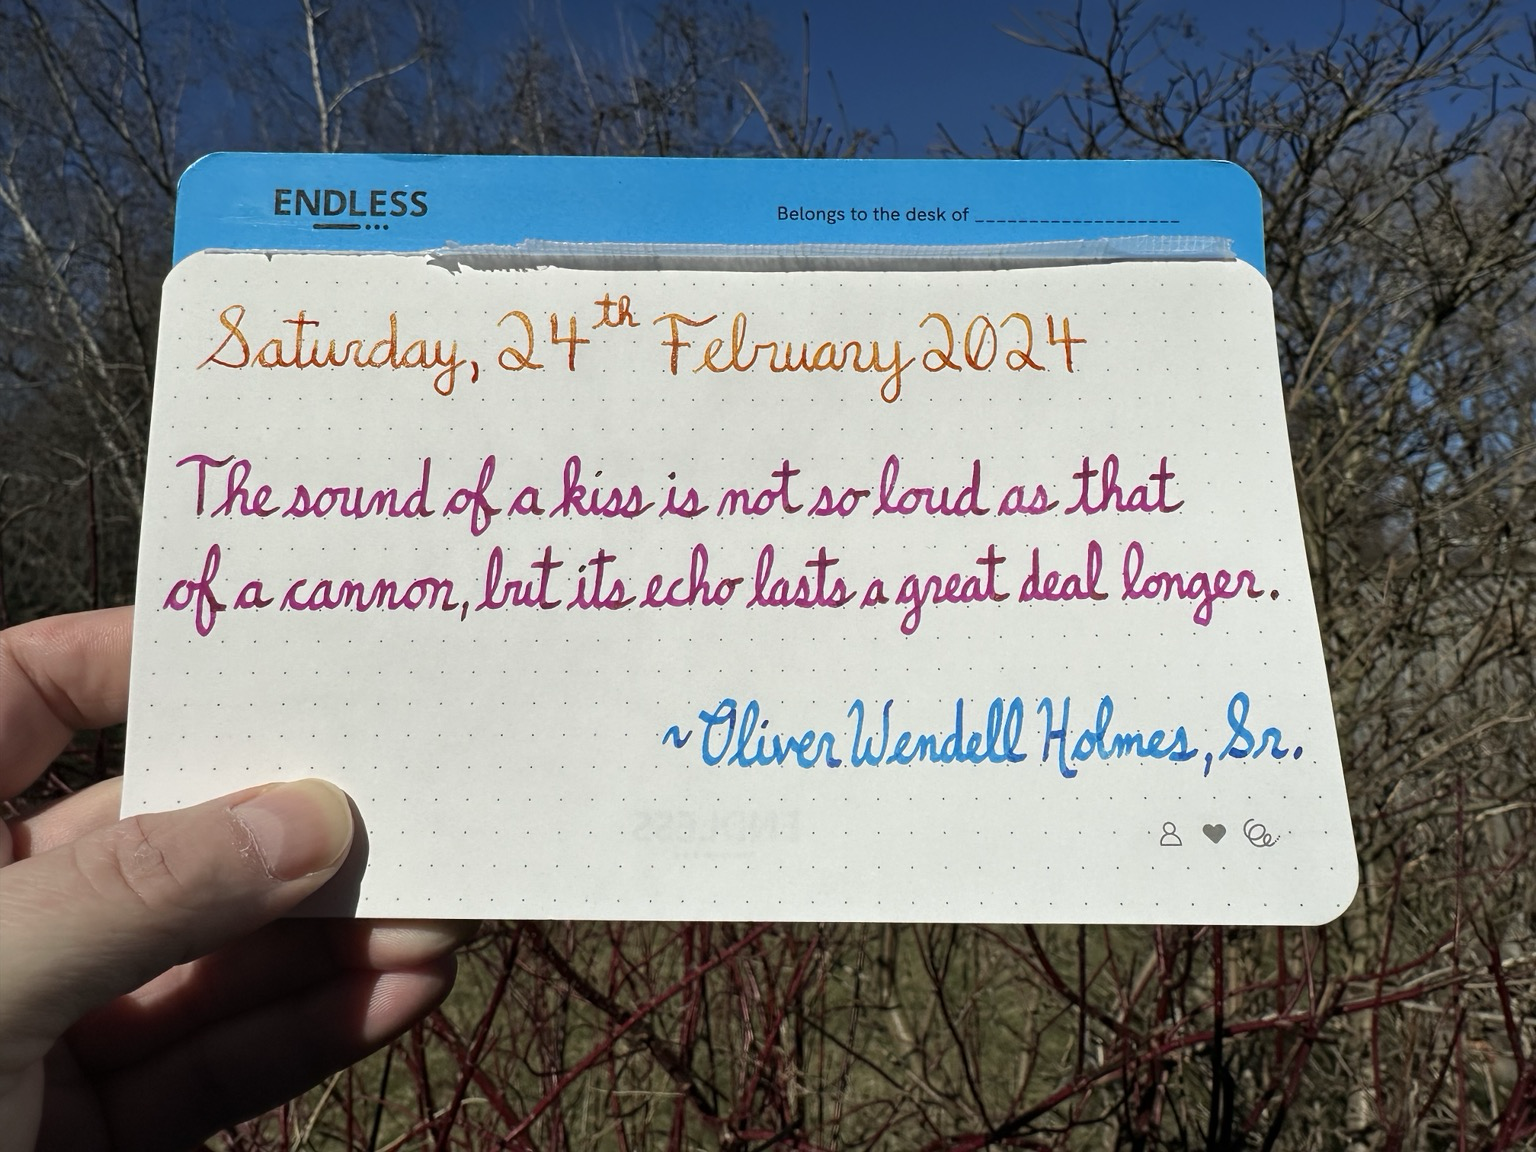 ENDLESS
Belongs to the desk of ____________________
Saturday, 24th February 2024
The sound of a kiss is not so loud as that
of a cannon, but its echo lasts a great deal longer.
~Oliver Wendell Holmes, Sr.
ENDLESS